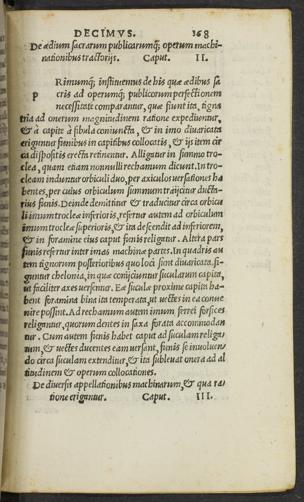 DECIMVS. 168
De ædium sacrarum publicarumq; operum machi-
nationibus tractorijs. Caput. II.
PRimumq; instituemus de his quæ ædibus sa
cris ad operumq; publicorum perfectionem
necessitate comparantur, quæ fiunt ita, tigna
tria ad onerum magnitudinem ratione expediuntur,
& à capite à fibula coniuncta, & in imo diuaricata
eriguntur funibus in capitibus collocatis, & ijs item cir
ca dispositis erecta retinentur. Alligatur in summo tro-
clea, quam etiam nonnulli rechamum dicunt. In tro-
cleam induntur orbiculi duo, per axiculos uersationes ha
bentes, per cuius orbiculum summum traijcitur ducta-
rius funis. Deinde demittitur & traducitur circa orbicu
li imum trocleæ inferioris, refertur autem ad orbiculum
imum trocleæ superioris, & ita descendit ad inferiorem,
& in foramine eius caput funis religatur. Altera pars
funis refertur inter imas machinæ partes. In quadris au
tem tignorum posterioribus quo loci sunt diuaricata, fi-
guntur chelonia, in quæ conijciuntur sucularum capita,
ut faciliter axes uersentur. Eæ suculæ proxime capita ha
bent foramina bina ita temperata, ut uectes in ea conue
nire possint. Ad rechamum autem imum ferrei forfices
religantur, quorum dentes in saxa forata accommodan
tur. Cum autem funis habet caput ad suculam religa-
tum, & uectes ducentes eam uersant, funis se inuoluen-
do circa suculam extenditur, & ita subleuat onera ad al
titudinem & operum collocationes.
De diuersis appellationibus machinarum, & qua ra-
tione erigantur. Caput. III.